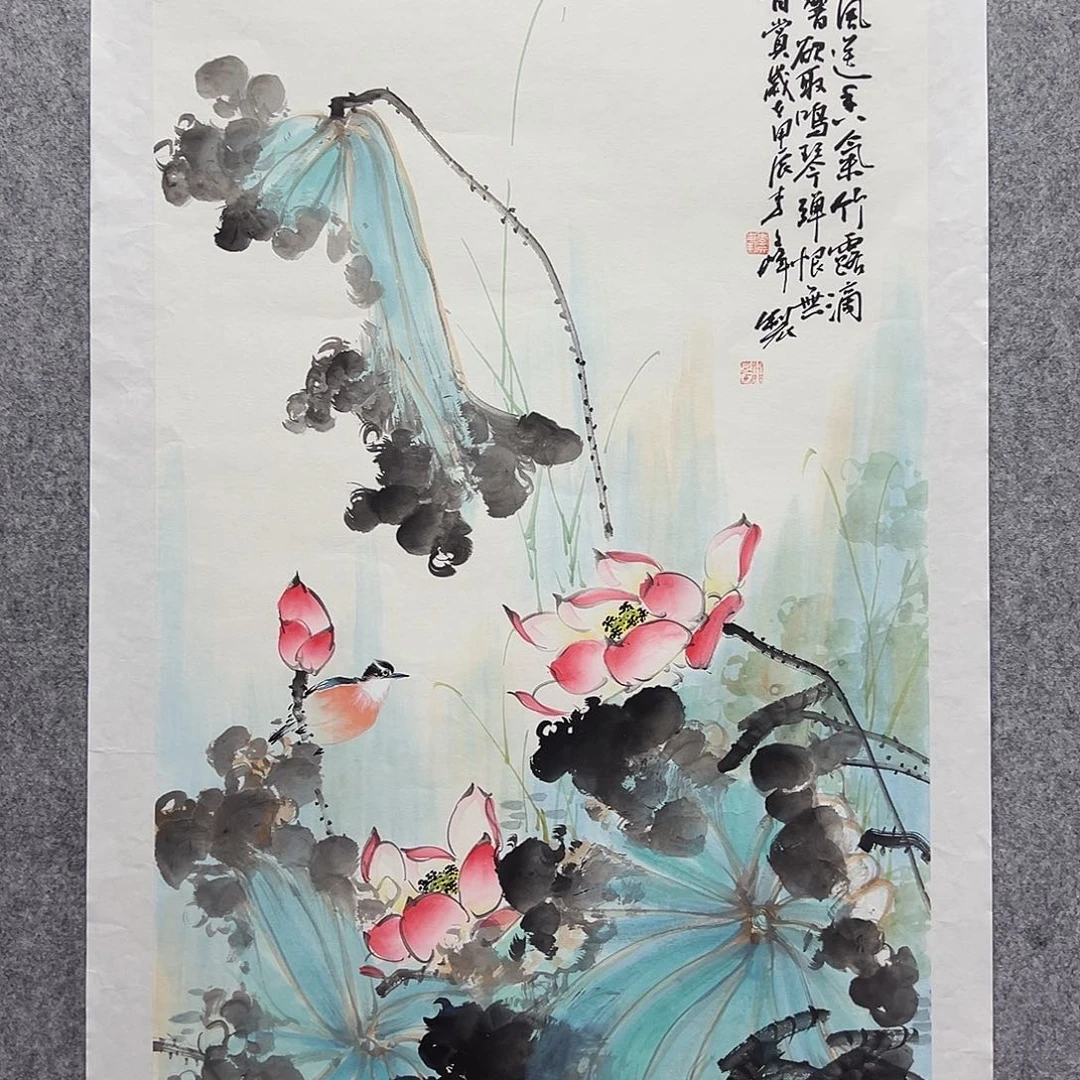 風送香氣竹露滴
響欲取鳴琴彈恨無
音賞歲在甲辰峰製